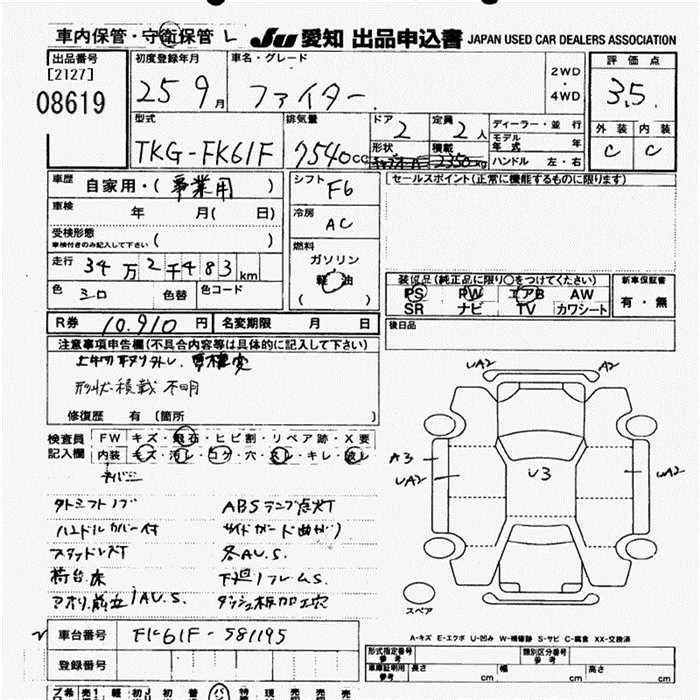 車内保管・守衛保管 L
JU 愛知 出品申込書 JAPAN USED CAR DEALERS ASSOCIATION
出品番号
[2127]
08619
初度登録年月
25 9月
車名・グレード
ファイター
2WD
・
4WD
評価点
3.5
外装 内装
C C
型式
TKG-FK61F
排気量
7540cc
ドア
2
定員
2人
形状
積載
2350kg
ディーラー・並行
モデル年式 年
ハンドル 左・右
車歴
自家用・(事業用)
車検
年 月( 日)
受検形態
車検付きのみ記入して下さい ( )
走行 34万2千483km
色 シロ 色替 色コード
シフト
F6
冷房
AC
燃料
ガソリン
軽油
( )
セールスポイント(正常に機能するものに限ります)
装備品(純正品に限り○をつけてください)
PS PW エアB AW
SR ナビ TV カワシート
新車保証書
有・無
R券 10.910円 名変期限 月 日
後日品
注意事項申告欄(不具合内容等は具体的に記入して下さい)
形状・積載 不明
修復歴 有 (箇所 )
検査員
記入欄
FW キズ・飛石・ヒビ割・リペア跡・X要
内装 キズ・汚レ・コゲ・穴・スレ・キレ・破レ
タトミフトノブ ABSランプ点灯
ハンドルカバー付 サイドガード曲がり
スタッドレス灯 各AU.S.
荷台床 下廻リフレームS.
アオリ.前立 AU.S. ダッシュ板加工穴
UA2 A2
A3
UA2
U3
UA2
スペア
A-キズ E-エクボ U-凹み W-補修跡 S-サビ C-腐食 XX-交換済
レ 車台番号 FK61F-581195
登録番号
形式指定番号
参考
類別区分番号
参考
車庫証明用
参考
長さ cm 幅 cm 高さ cm